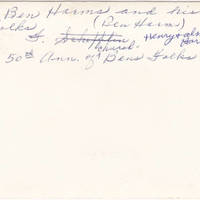 Ben Harms and his
folks (Ben Harm)
Church. Henry +
50th Ann. of Bens Folks